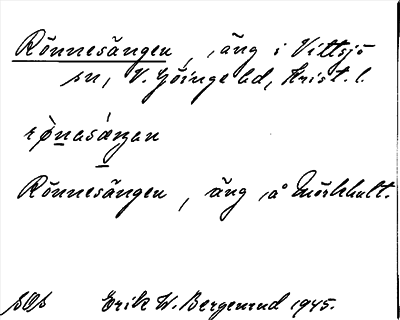 Rönnesängen, äng i Vittsjö
sn, V. Göinge hd, Krist. l.
rǿnasæŋan
Rönnesängen, äng å Mörkhult.
SOS Erik W. Bergenrud 1945.